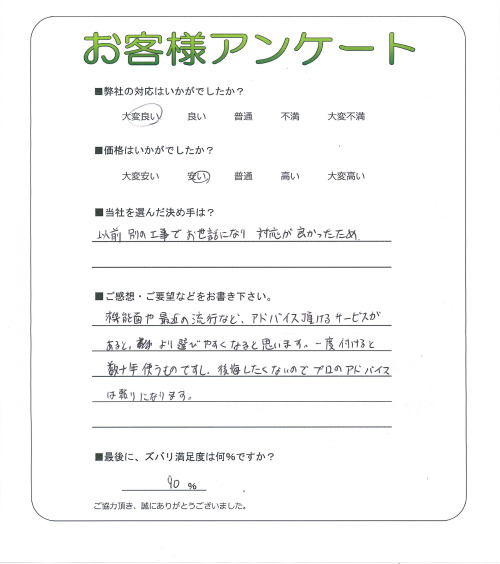 お客様アンケート
■弊社の対応はいかがでしたか？
大変良い 良い 普通 不満 大変不満
■価格はいかがでしたか？
大変安い 安い 普通 高い 大変高い
■当社を選んだ決め手は？
以前 別の工事でお世話になり 対応が良かったため.
■ご感想・ご要望などをお書き下さい。
機能面や最近の流行など、アドバイス頂けるサービスが
あると, より選びやすくなると思います。一度付けると
数十年使うものですし、後悔したくないのでプロのアドバイス
は頼りになります。
■最後に、ズバリ満足度は何％ですか？
90 %
ご協力頂き、誠にありがとうございました。